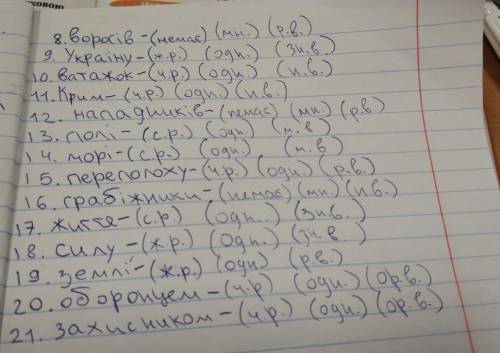 8. ворогів – (немає) (мн.) (р.в.)
9. Україну – (ж.р.) (одн.) (зн.в.)
10. ватажок – (ч.р.) (одн.) (н.в.)
11. Крим – (ч.р.) (одн.) (н.в.)
12. нападників – (немає) (мн.) (р.в.)
13. полі – (с.р.) (одн.) (м.в)
14. морі – (с.р.) (одн.) (м.в)
15. переполоху – (ч.р.) (одн.) (р.в.)
16. грабіжники – (немає) (мн.) (н.в.)
17. життя – (с.р.) (одн.) (зн.в.)
18. силу – (ж.р.) (одн.) (зн.в.)
19. землі – (ж.р.) (одн) (р.в.)
20. оборонцем – (ч.р) (одн.) (ор.в.)
21. захисником – (ч.р.) (одн.) (ор.в.)